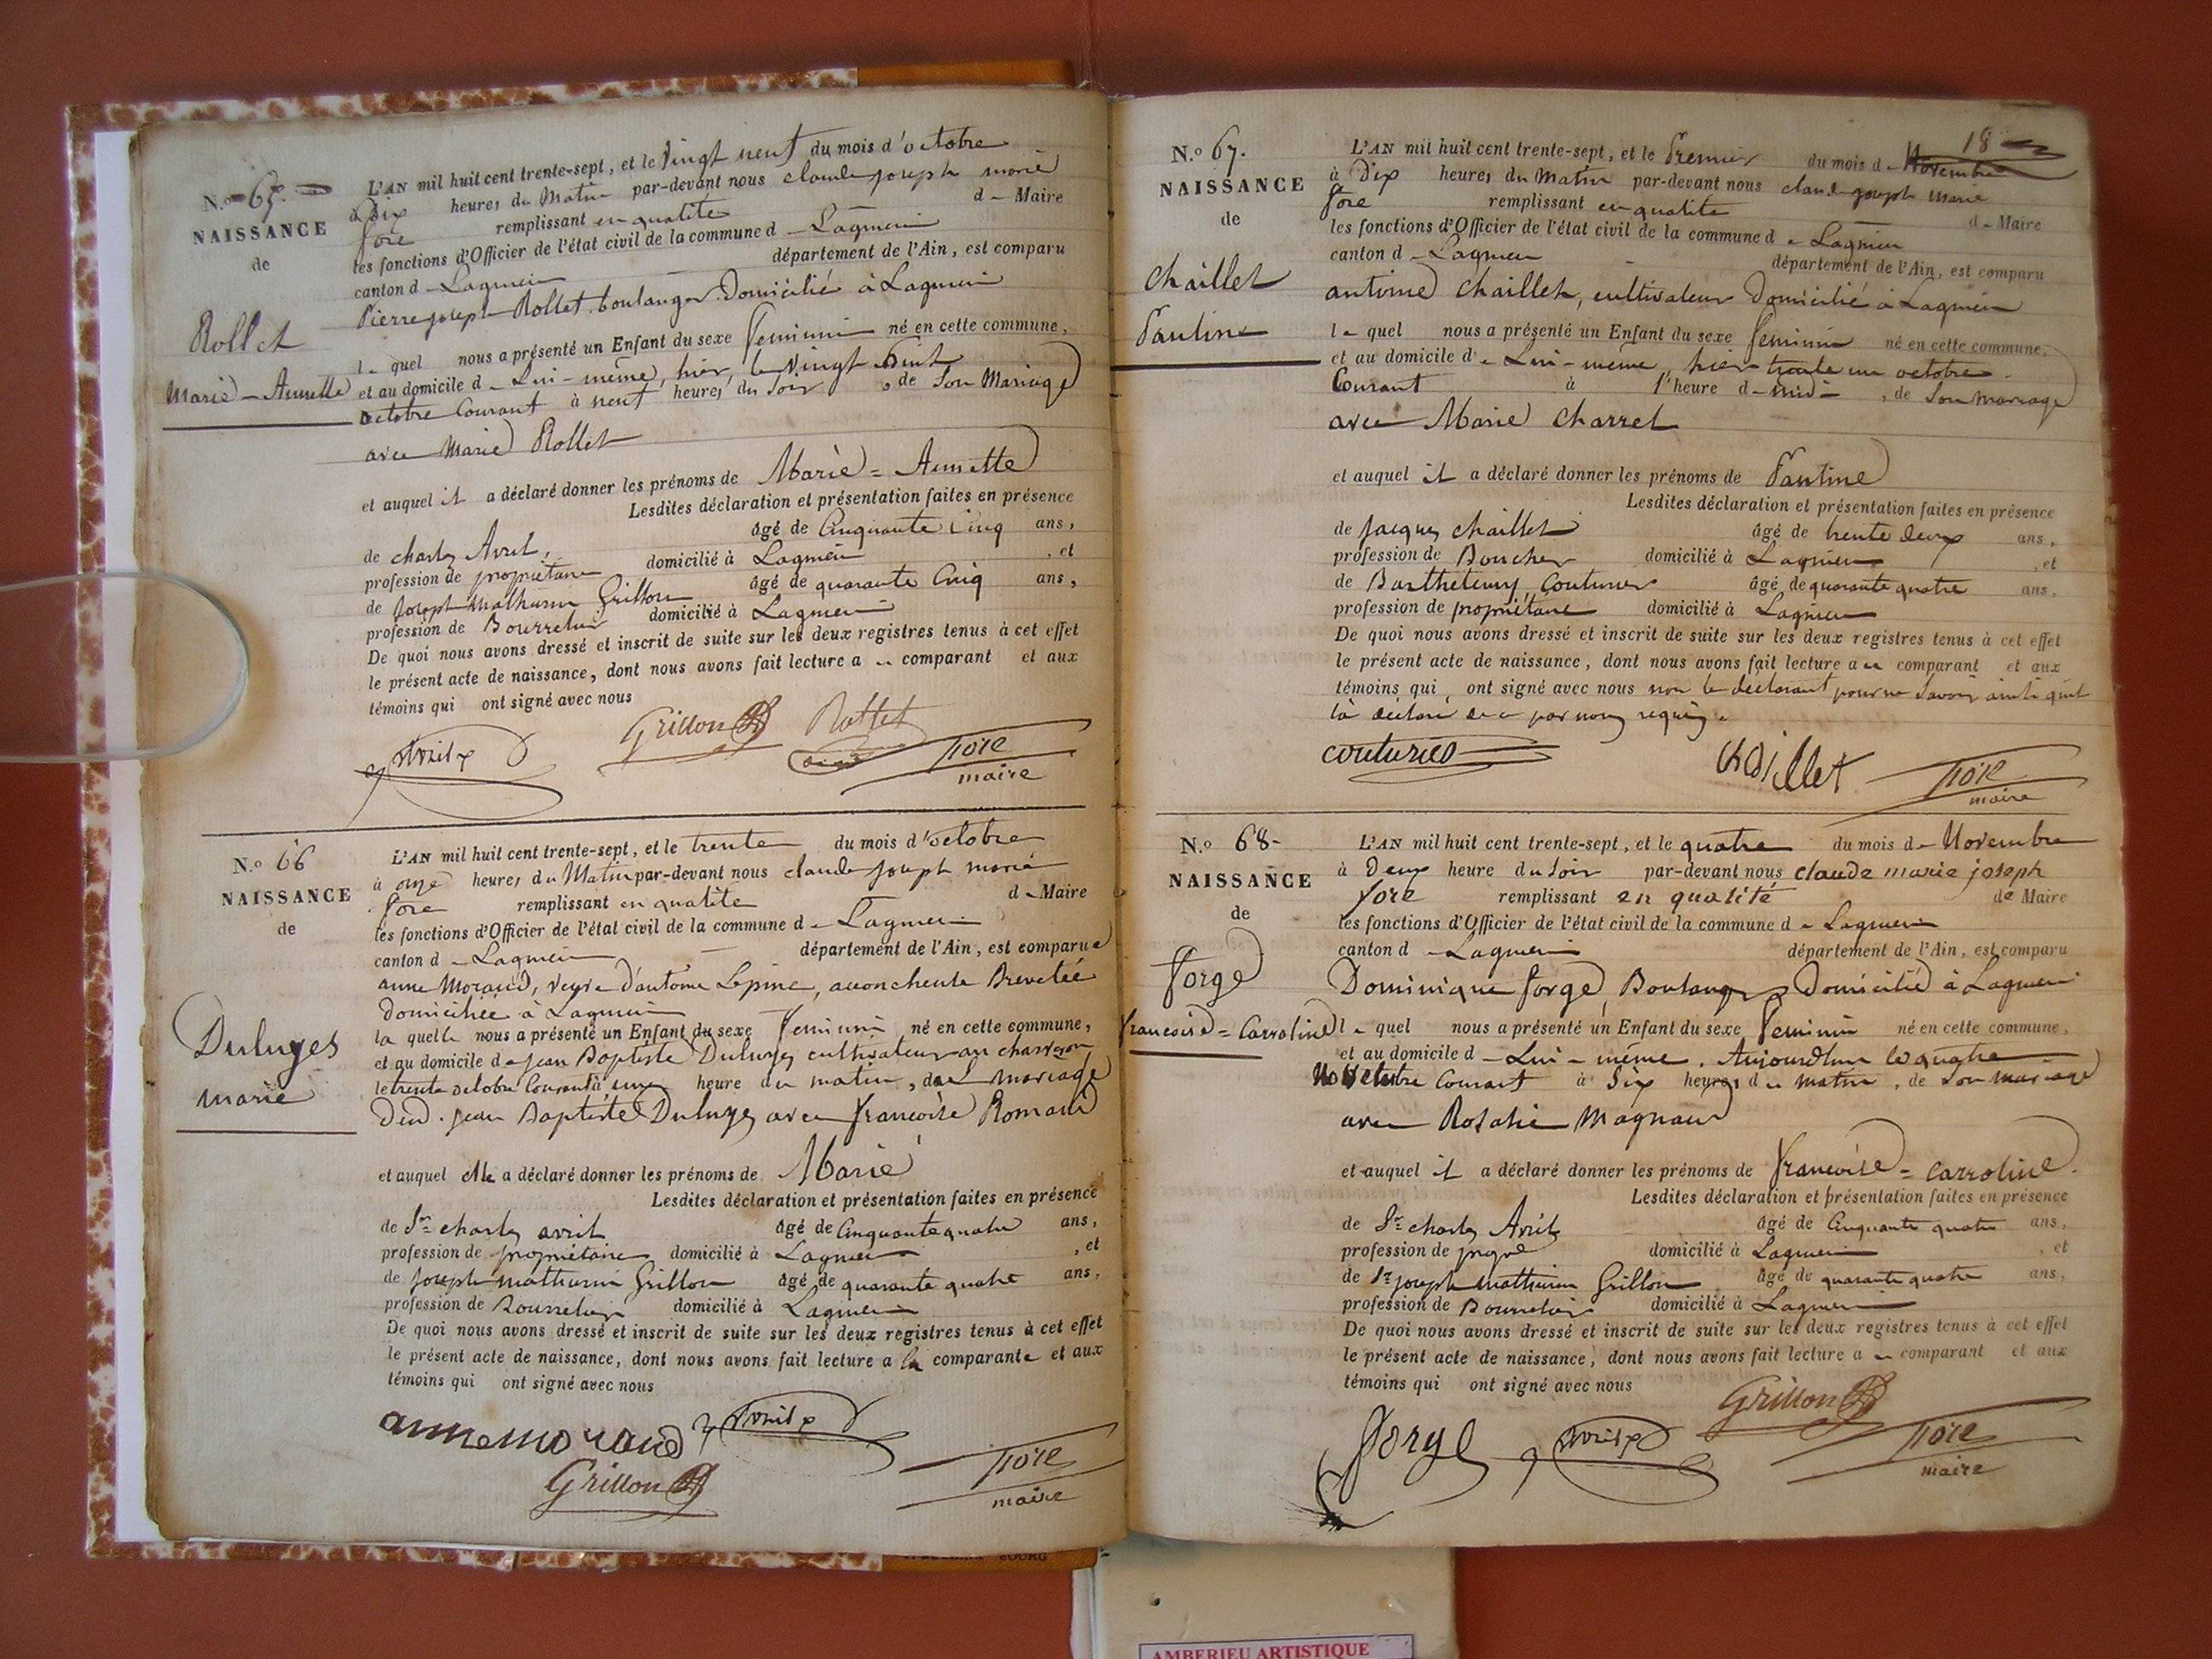 N.o 65.
NAISSANCE
de
Rollet
Marie - Annette
L'AN mil huit cent trente-sept, et le Vingt neuf du mois d'octobre
à Dix heures du Matin par-devant nous claude joseph marie
fore remplissant en qualité de Maire
les fonctions d'Officier de l'état civil de la commune de Lagnieu
canton de Lagnieu département de l'Ain, est comparu
Pierre joseph Rollet boulanger Domicilié à Lagnieu
le quel nous a présenté un Enfant du sexe feminin né en cette commune,
et au domicile de Lui-même, hier, le Vingt huit
octobre Courant à neuf heures du Soir, de Son Mariage
avec Marie Rollet
et auquel il a déclaré donner les prénoms de Marie = Annette
Lesdites déclaration et présentation faites en présence
de charles Avril, âgé de Cinquante Cinq ans,
profession de propriétaire domicilié à Lagnieu, et
de Joseph Mathurin Grillon âgé de quarante Cinq ans,
profession de Bourrelier domicilié à Lagnieu
De quoi nous avons dressé et inscrit de suite sur les deux registres tenus à cet effet
le présent acte de naissance, dont nous avons fait lecture au comparant et aux
témoins qui ont signé avec nous
Avril Grillon Rollet fore
maire
N.o 66
NAISSANCE
de
Duluyes
marie
L'AN mil huit cent trente-sept, et le trente du mois d'octobre
à onze heures du Matin par-devant nous claude joseph marie
fore remplissant en qualité de Maire
les fonctions d'Officier de l'état civil de la commune de Lagnieu
canton de Lagnieu département de l'Ain, est comparue
anne Moraud, veuve d'antoine Lepine, accoucheuse Brevetée
domiciliée à Lagnieu
la quelle nous a présenté un Enfant du sexe feminin né en cette commune,
et au domicile de jean Baptiste Duluyes cultivateur au charveron
le trente octobre Courant à une heure du matin, du mariage
dud. jean Baptiste Duluyes avec francoise Romand
et auquel elle a déclaré donner les prénoms de Marie
Lesdites déclaration et présentation faites en présence
de Sr charles avril âgé de Cinquante quatre ans,
profession de propriétaire domicilié à Lagnieu, et
de Joseph mathurin Grillon âgé de quarante quatre ans,
profession de Bourrelier domicilié à Lagnieu
De quoi nous avons dressé et inscrit de suite sur les deux registres tenus à cet effet
le présent acte de naissance, dont nous avons fait lecture a la comparante et aux
témoins qui ont signé avec nous
anne moraud Avril
Grillon fore
maire
18
N.o 67.
NAISSANCE
de
Chaillet
Pauline
L'AN mil huit cent trente-sept, et le Premier du mois de Novembre
à Dix heures du Matin par-devant nous claude joseph marie
fore remplissant en qualité de Maire
les fonctions d'Officier de l'état civil de la commune de Lagnieu
canton de Lagnieu département de l'Ain, est comparu
antoine Chaillet, cultivateur Domicilié à Lagnieu
le quel nous a présenté un Enfant du sexe feminin né en cette commune,
et au domicile de Lui-même, hier trente un octobre
Courant à l'heure de midi, de Son mariage
avec Marie Charret
et auquel il a déclaré donner les prénoms de Pauline
Lesdites déclaration et présentation faites en présence
de Jacques Chaillet âgé de trente deux ans,
profession de Boucher domicilié à Lagnieu, et
de Barthelemy Couturier âgé de quarante quatre ans,
profession de propriétaire domicilié à Lagnieu
De quoi nous avons dressé et inscrit de suite sur les deux registres tenus à cet effet
le présent acte de naissance, dont nous avons fait lecture au comparant et aux
témoins qui, ont signé avec nous non le déclarant pour ne Savoir ainsi qu'il
là déclaré de ce par nous requis.
couturier chaillet fore
maire
N.o 68-
NAISSANCE
de
Forge
francoise = Carroline
L'AN mil huit cent trente-sept, et le quatre du mois de Novembre
à Deux heure du Soir par-devant nous claude marie joseph
fore remplissant en qualité de Maire
les fonctions d'Officier de l'état civil de la commune de Lagnieu
canton de Lagnieu département de l'Ain, est comparu
Dominique forge, Boulanger Domicilié à Lagnieu
le quel nous a présenté un Enfant du sexe feminin né en cette commune,
et au domicile de Lui-même, Aujourdhui le quatre
Novembre Courant à Six heures du matin, de Son mariage
avec Rosalie Magnaud
et auquel il a déclaré donner les prénoms de francoise = carroline.
Lesdites déclaration et présentation faites en présence
de Sr charles Avril âgé de Cinquante quatre ans,
profession de propre domicilié à Lagnieu, et
de Sr joseph mathurin Grillon âgé de quarante quatre ans,
profession de Bourrelier domicilié à Lagnieu
De quoi nous avons dressé et inscrit de suite sur les deux registres tenus à cet effet
le présent acte de naissance, dont nous avons fait lecture au comparant et aux
témoins qui ont signé avec nous
Grillon
Forge Avril fore
maire
AMBERIEU ARTISTIQUE